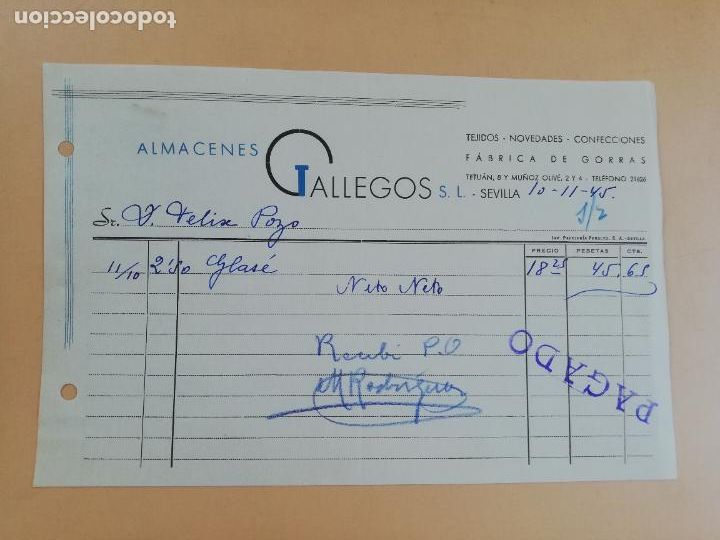 todocoleccion
ALMACENES GALLEGOS S. L. - SEVILLA
TEJIDOS - NOVEDADES - CONFECCIONES
FÁBRICA DE GORRAS
TETUÁN, 8 Y MUÑOZ OLIVÉ, 2 Y 4 - TELÉFONO 21626
10-11-45.
1/2
Sr. D. Felix Pozo
Imp. Papelería Peralto, S. A.-Sevilla
PRECIO PESETAS CTS.
11/10 2'50 Glasé 18 25 45. 65
Neto Neto
Recibi P.O
M Rodriguez
PAGADO